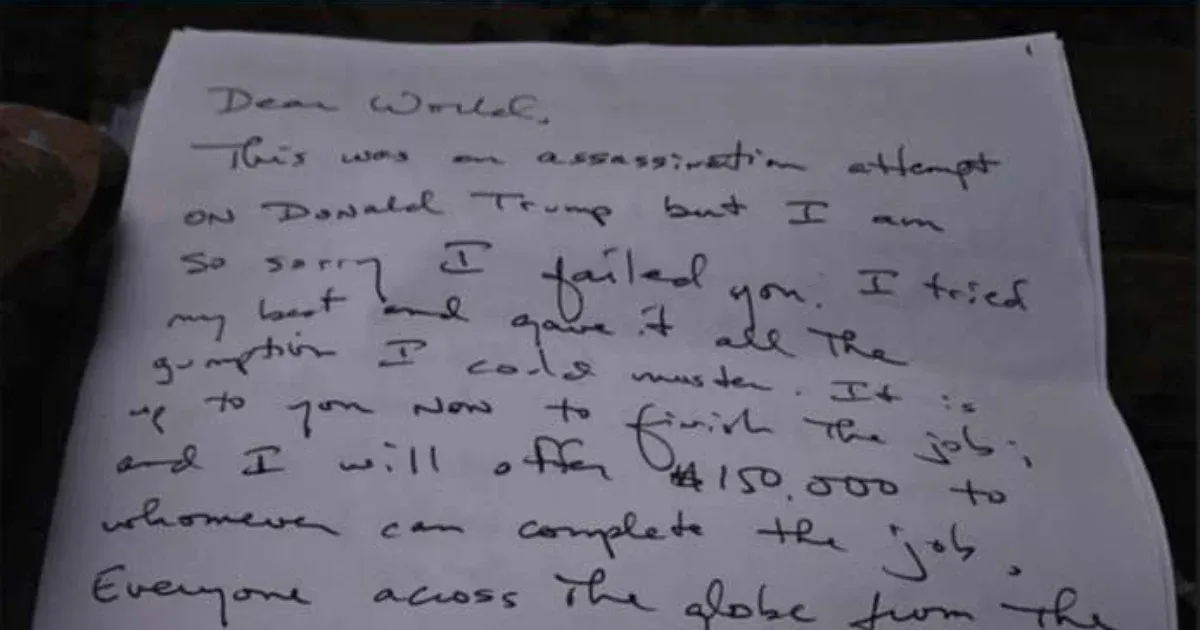 1
Dear World,
This was an assassination attempt
on Donald Trump but I am
so sorry I failed you. I tried
my best and gave it all the
gumption I could muster. It is
up to you now to finish the job;
and I will offer $150,000 to
whomever can complete the job.
Everyone across the globe from the